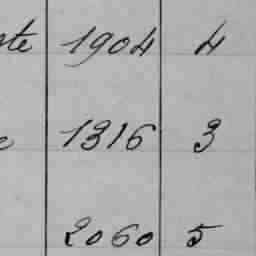 1904 4
1316 3
2060 5